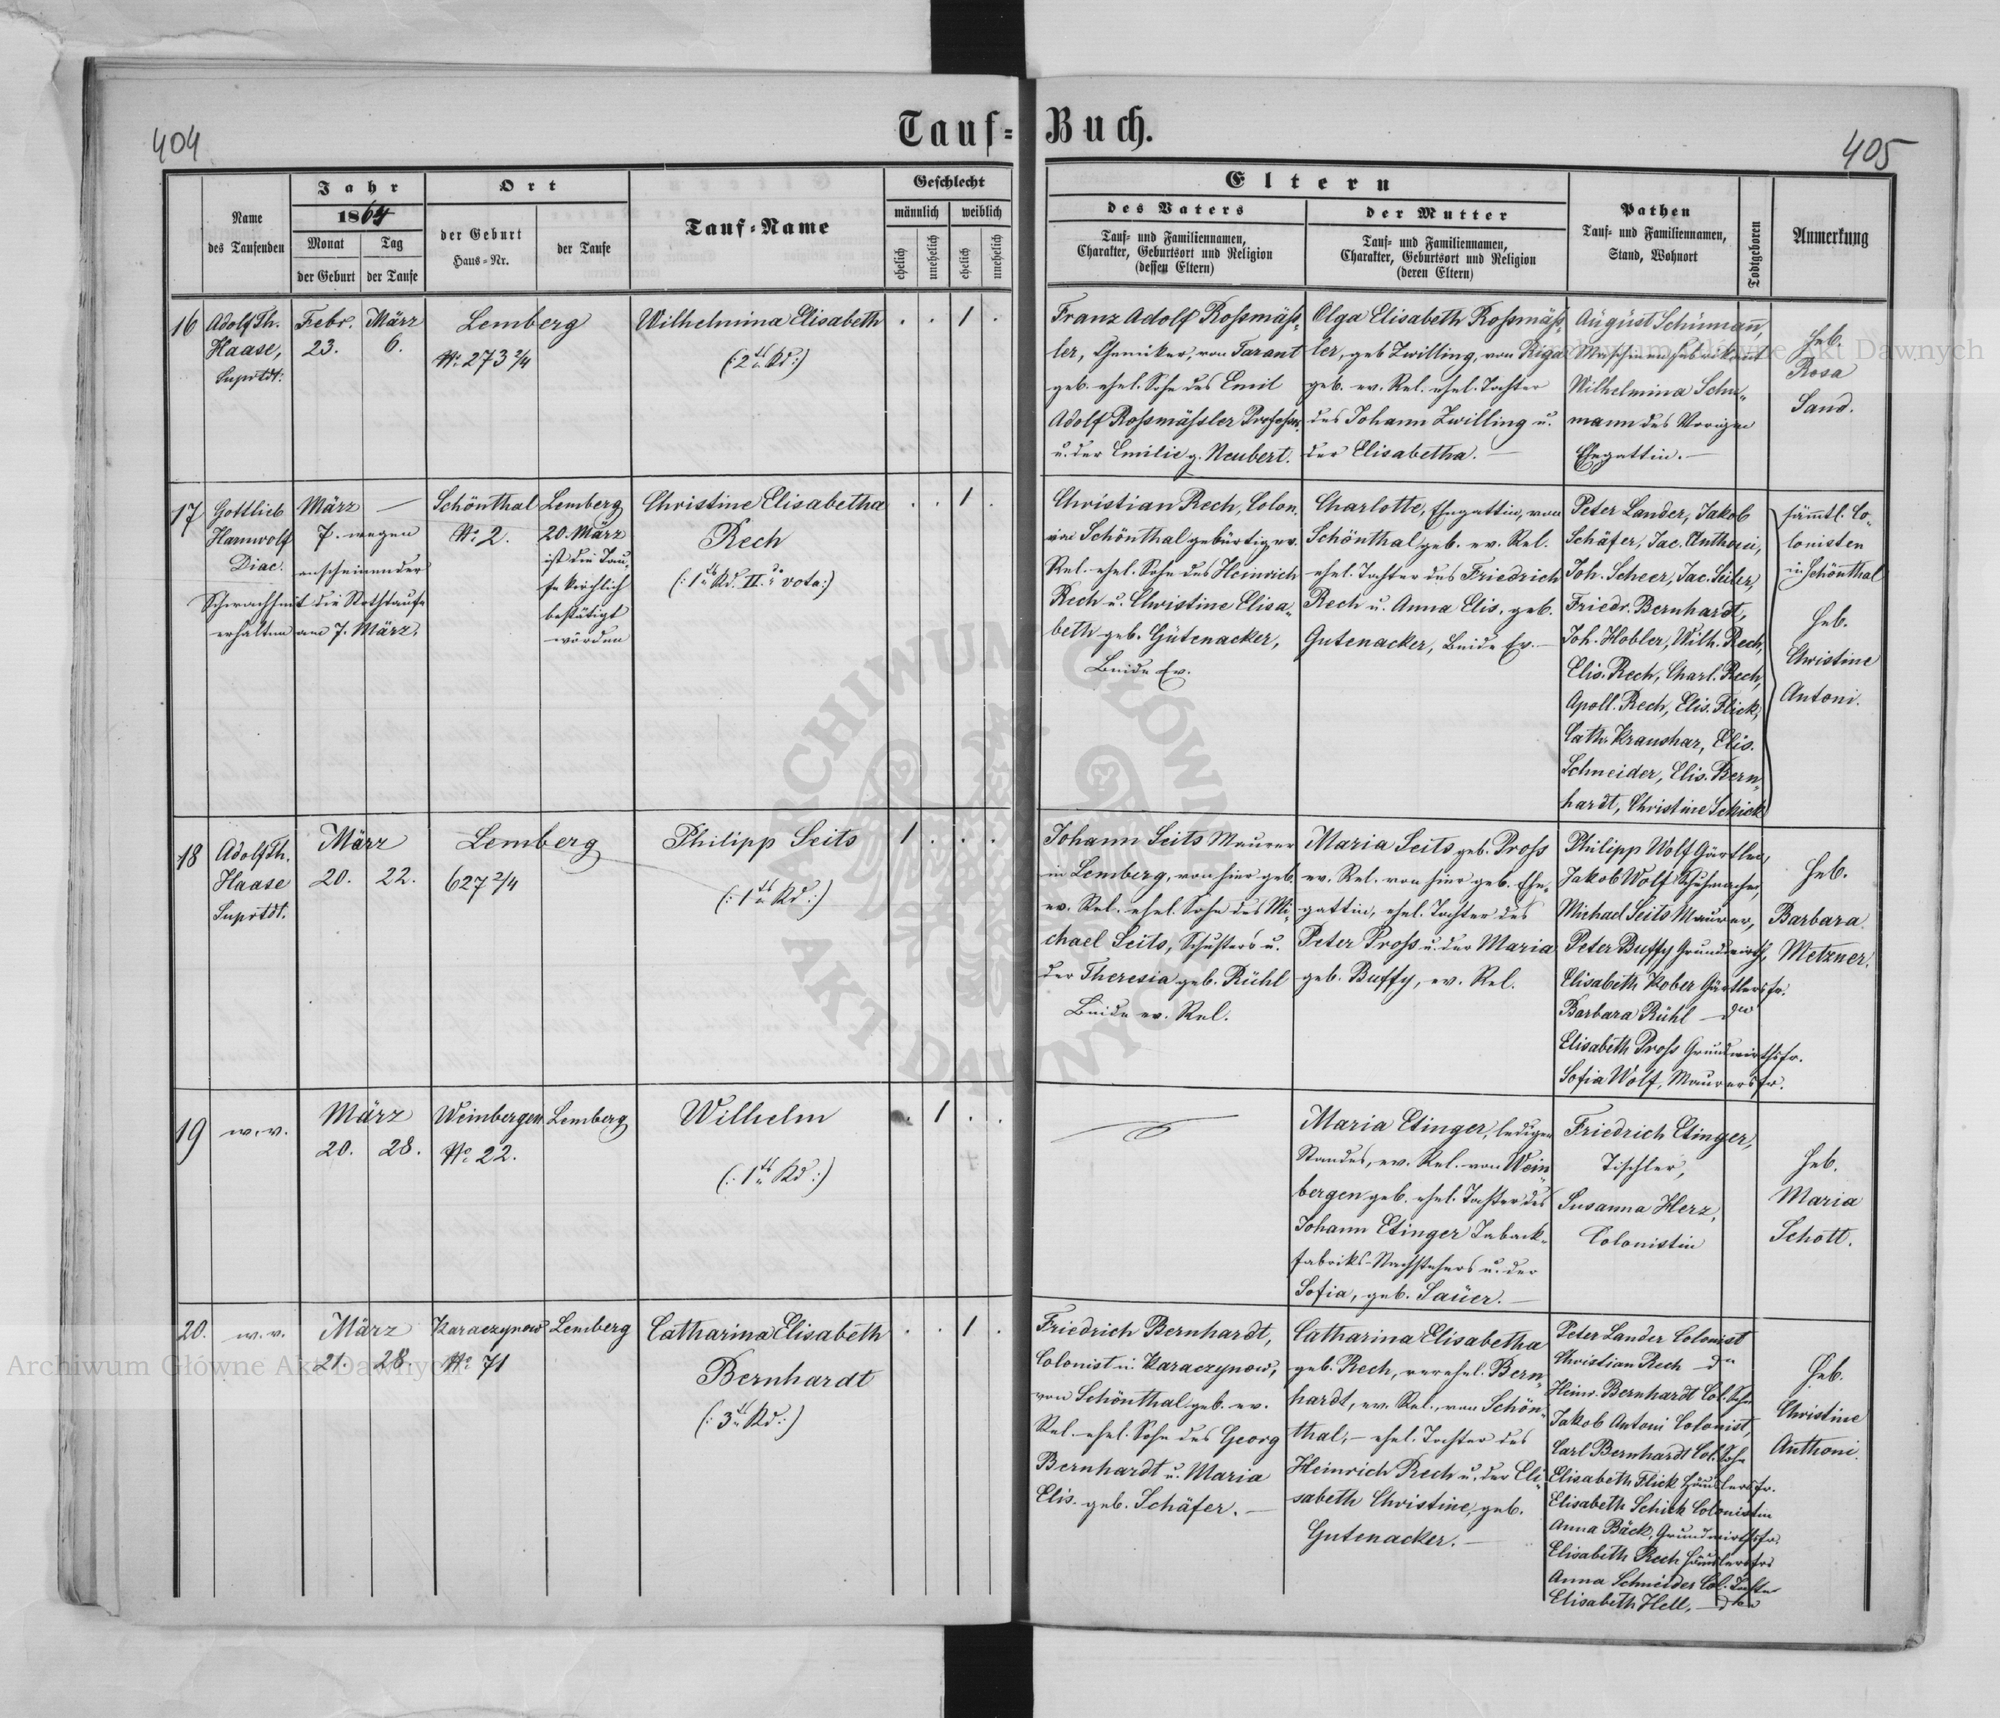 404
Tauf=
Buch.
405
Name
des Taufenden
Jahr
1864
Monat
der Geburt
Tag
der Taufe
Ort
der Geburt
Haus=Nr.
der Taufe
Tauf=Name
Geschlecht
männlich
weiblich
ehelich
unehelich
ehelich
unehelich
Eltern
des Vaters
Tauf= und Familiennamen,
Charakter, Geburtsort und Religion
(dessen Eltern)
der Mutter
Tauf= und Familiennamen,
Charakter, Geburtsort und Religion
(deren Eltern)
Pathen
Tauf= und Familiennamen,
Stand, Wohnort
Todtgeboren
Anmerkung
16
Adolf Th.
Haase,
Suprtdt:
Febr.
23.
März
6.
Lemberg
No 273 2/4
Wilhelmina Elisabeth
(:2tes Kd:)
1
Franz Adolf Roßmäß„
ler, Chemiker, von Tarant
geb. ehel. Sohn des Emil
Adolf Roßmäßler Professor
u. der Emilie g. Neubert.
Olga Elisabeth Roßmäß„
ler, geb Zwilling, von Riga
geb. ev. Rel. ehel. Tochter
des Johann Zwilling u.
der Elisabetha. —
August Schumann,
Maschinenfabrikant
Wilhelmina Schu„
mann des Vorigen
Ehegattin. —
Heb.
Rosa
Sand.
17
Gottlieb
Harnwolf
Diac.
März —
7. wegen
anscheinender
Schwachheit die Nothtaufe
erhalten am 7. März.
Schönthal
No 2.
Lemberg
20. März
ist die Tau„
fe kirchlich
bestätigt
worden
Christine Elisabetha
Rech
(:1tes Kd. II.di vota:)
1
Christian Rech, Colon.
von Schönthal gebürtig ev.
Rel. ehel. Sohn des Heinrich
Rech u. Christine Elisa„
beth geb. Gutenacker,
Beide Ev.
Charlotte, Ehegattin, von
Schönthal geb. ev. Rel.
ehel. Tochter des Friedrich
Rech u. Anna Elis. geb.
Gutenacker, Beide Ev. —
Peter Lander, Jakob
Schäfer, Jac. Anthoni,
Joh. Scheer, Jac. Seiler,
Friedr. Bernhardt,
Joh. Hobler, Wilh. Rech,
Elis. Rech, Charl. Rech,
Apoll. Rech, Elis. Flick,
Cath. Kraushar, Elis.
Schneider, Elis. Bern„
hardt, Christine Schick
sämtl. Co„
lonisten
in Schönthal
Heb.
Christine
Antoni.
18
Adolf Th.
Haase
Suprtdt.
März
20.
22.
Lemberg
627 2/4
Philipp Seits
(:1tes Kd:)
1
Johann Seits Maurer
in Lemberg, von hier geb.
ev. Rel. ehel. Sohn des Mi„
chael Seits, Schusters u.
der Theresia geb. Rühl
Beide ev. Rel.
Maria Seits geb. Proß
ev. Rel. von hier geb. Ehe„
gattin, ehel. Tochter des
Peter Proß u. der Maria
geb. Buffy, ev. Rel.
Philipp Wolf Gärtler,
Jakob Wolf Schuhmacher,
Michael Seits Maurer,
Peter Buffy Grundwirth,
Elisabeth Kober Gärtlersfr.
Barbara Rühl — dto
Elisabeth Proß Grundwirthsfr.
Sofia Wolf, Maurersfr.
Heb.
Barbara
Metzner.
19
w. v.
März
20.
28.
Weinbergen
No 22.
Lemberg
Wilhelm
(:1tes Kd:)
1
Maria Etinger, ledigen
Standes, ev. Rel. von Wein„
bergen geb. ehel. Tochter des
Johann Etinger Taback„
fabriks-Nachsehers u. der
Sofia, geb. Sauer. —
Friedrich Etinger,
Tischler,
Susanna Herz,
Colonistin
Heb.
Maria
Schott.
20.
w. v.
März
21.
28.
Karaczynow
No 71
Lemberg
Catharina Elisabeth
Bernhardt
(:3tes Kd:)
1
Friedrich Bernhardt,
Colonist in Karaczynow,
von Schönthal geb. ev.
Rel. ehel. Sohn des Georg
Bernhardt u. Maria
Elis. geb. Schäfer. —
Catharina Elisabetha
geb. Rech, verehel. Bern„
hardt, ev. Rel., von Schön„
thal, — ehel. Tochter des
Heinrich Rech u. der Eli„
sabeth Christine, geb.
Gutenacker. —
Peter Lander Colonist
Christian Rech — dto
Heinr. Bernhardt Col. Sohn
Jakob Antoni Colonist,
Carl Bernhardt Col. Sohn
Elisabeth Flick Häuslersfr.
Elisabeth Schick Colonistin
Anna Bäck, Grundwirthsfr.
Elisabeth Rech Häuslersfr.
Anna Schneider Col. Tochter
Elisabeth Hell, — dto
Heb.
Christine
Anthoni.
Archiwum Główne Akt Dawnych
Archiwum Główne Akt Dawnych
ARCHIWUM GŁÓWNE AKT DAWNYCH